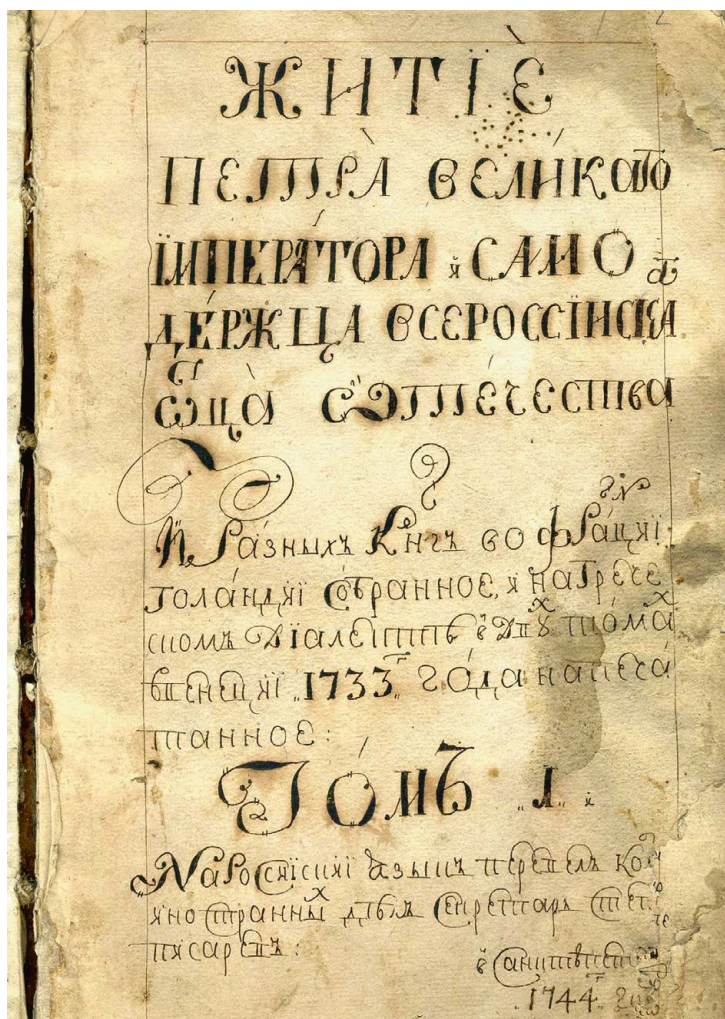 ЖИТЇЕ
ПЕТРА ВЕЛИКАГО
ЇМПЕРАТОРА и САМО
ДЕРЖЦА ВСЕРОССЇИСКА
ГѠ
ѠЦА ОТЕЧЕСТВА
Из разныхъ книгъ во францяї
голандяї собранное, я нагрече
скомъ дїалектѣ в двух тома
хъ
ввенецяї 1733 г года напеча
танное:
Томъ 1. й
На россяїскяї языкъ перевелъ кол
яностранных дѣлъ секретарь сте
писаревъ:
в санктпетер
1744 г